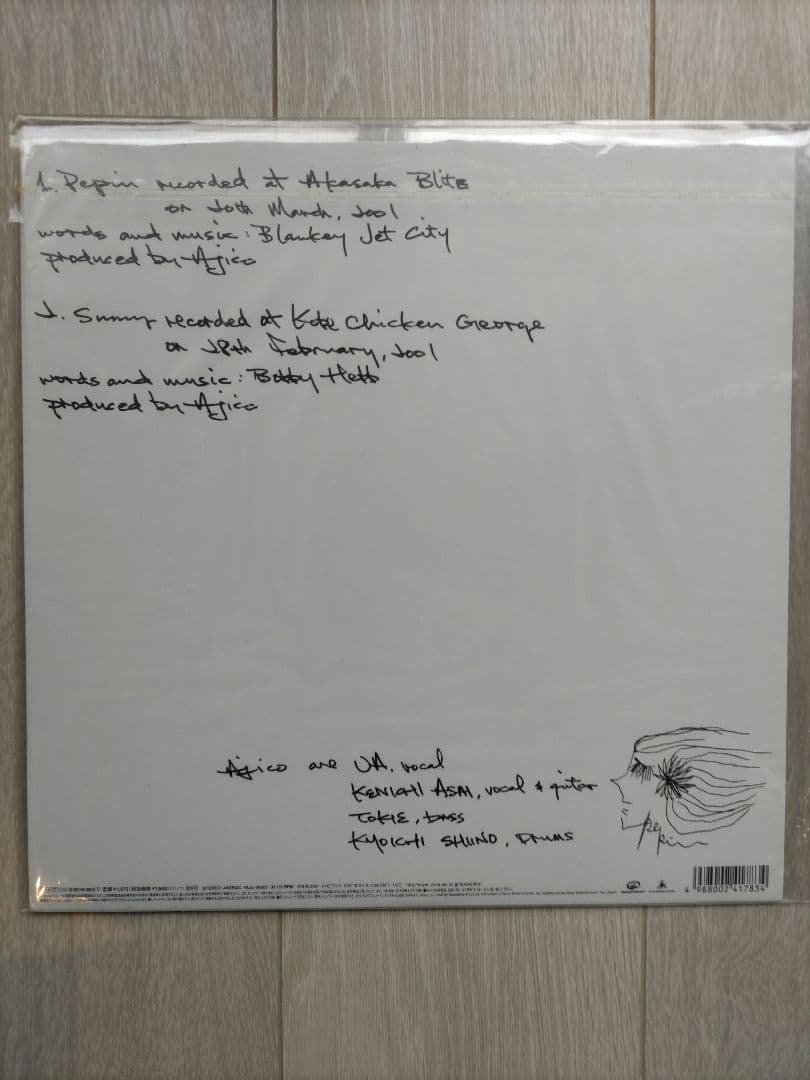 1. Pepin recorded at Akasaka Blitz
on 20th March, 2001
words and music: Blankey Jet City
produced by Ajico
2. Sunny recorded at Kobe Chicken George
on 28th February, 2001
words and music: Bobby Hebb
produced by Ajico
Ajico are UA, vocal
KENICHI ASAI, vocal & guitar
TOKIE, bass
KYOICHI SHIINO, DRUMS
pepin
STEREO
33 1/3 RPM
VICTOR ENTERTAINMENT, INC.
4 988002 417834